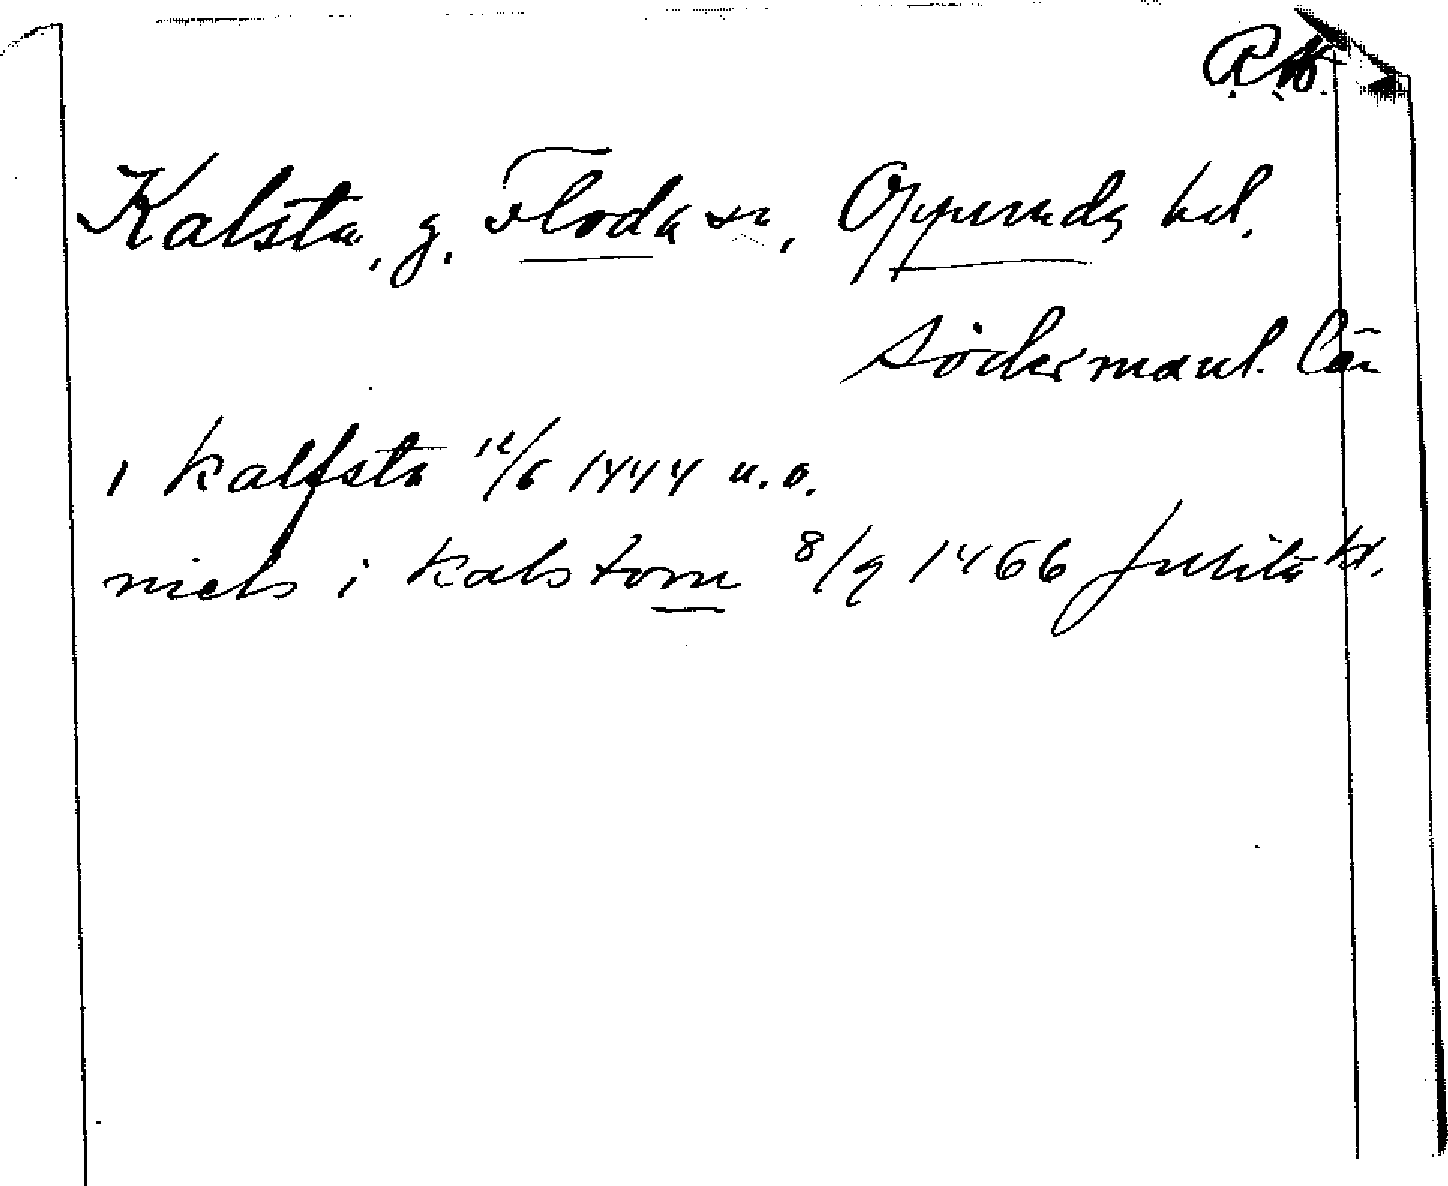 Kalsta, g. Floda sn, Oppunda hd.
Södermanl. län
i kalfsta 12/6 1444 u.o.
niels i kalstom 8/9 1466 Julita kl.